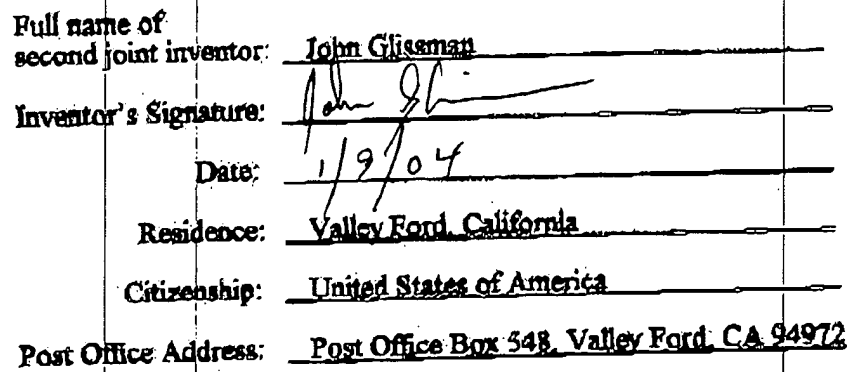 Full name of
second joint inventor: John Glissman
Inventor's Signature: John Gli
Date: 1/9/04
Residence: Valley Ford, California
Citizenship: United States of America
Post Office Address: Post Office Box 548, Valley Ford, CA 94972